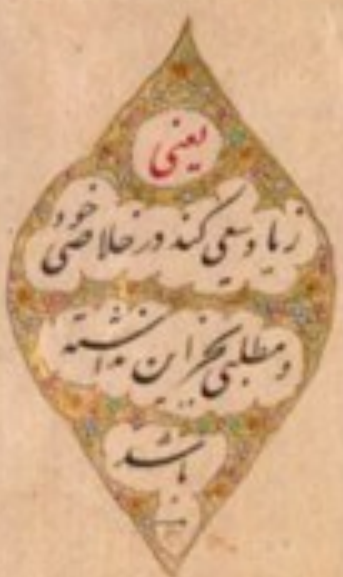 یعنی
زیاد سعی کند در خلاصی خود
و مطلبی بجز این نداشته
باشد